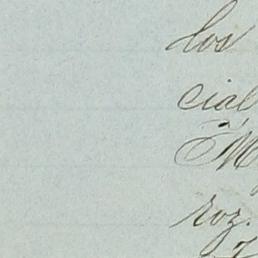 los
cial
M
roz.